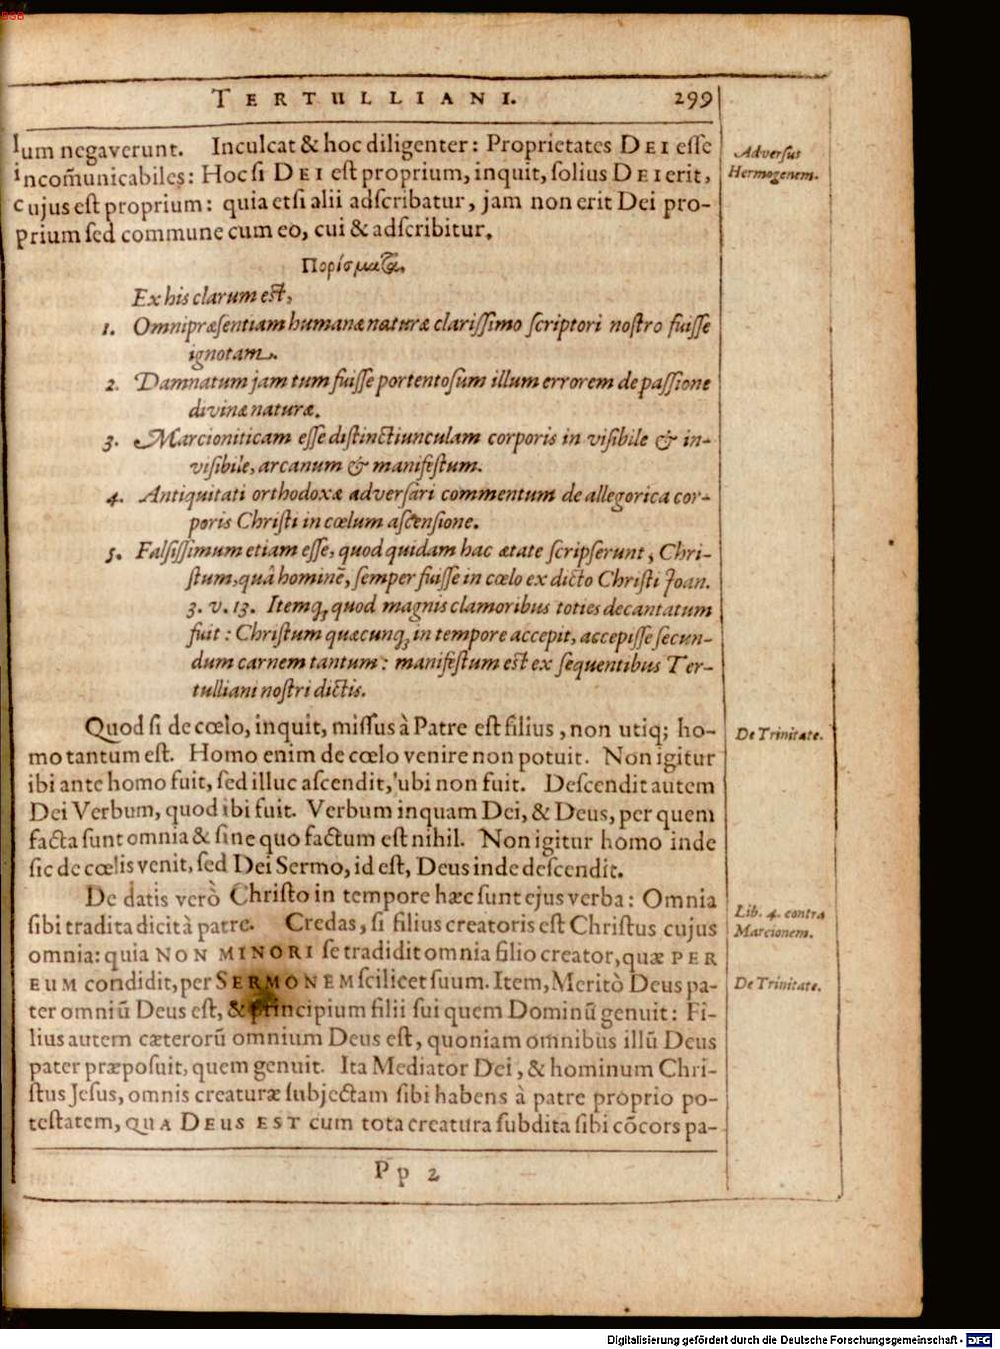 BSB
TERTULLIANI. 299
lum negaverunt. Inculcat & hoc diligenter: Proprietates DEI esse
incom̃unicabiles: Hoc si DEI est proprium, inquit, solius DEI erit,
cujus est proprium: quia etsi alii adscribatur, jam non erit Dei pro-
prium sed commune cum eo, cui & adscribitur.
Adversus
Hermogenem.
Πορίσματα.
Ex his clarum est,
1. Omnipræsentiam humanæ naturæ clarissimo scriptori nostro fuisse
ignotam.
2. Damnatum jam tum fuisse portentosum illum errorem de passione
divinæ naturæ.
3. Marcioniticam esse distinctiunculam corporis in visibile & in-
visibile, arcanum & manifestum.
4. Antiquitati orthodoxæ adversari commentum de allegorica cor-
poris Christi in cœlum ascensione.
5. Falsissimum etiam esse, quod quidam hac ætate scripserunt, Chri-
stum, quâ hominē, semper fuisse in cœlo ex dicto Christi Joan.
3. v. 13. Itemq; quod magnis clamoribus toties decantatum
fuit: Christum quæcunq; in tempore accepit, accepisse secun-
dum carnem tantum: manifestum est ex sequentibus Ter-
tulliani nostri dictis.
Quod si de cœlo, inquit, missus à Patre est filius, non utiq; ho-
mo tantum est. Homo enim de cœlo venire non potuit. Non igitur
ibi ante homo fuit, sed illuc ascendit, ubi non fuit. Descendit autem
Dei Verbum, quod ibi fuit. Verbum inquam Dei, & Deus, per quem
facta sunt omnia & sine quo factum est nihil. Non igitur homo inde
sic de cœlis venit, sed Dei Sermo, id est, Deus inde descendit.
De Trinitate.
De datis verò Christo in tempore hæc sunt ejus verba: Omnia
sibi tradita dicit à patre. Credas, si filius creatoris est Christus cujus
omnia: quia NON MINORI se tradidit omnia filio creator, quæ PER
EUM condidit, per SERMONEM scilicet suum. Item, Meritò Deus pa-
ter omniū Deus est, & principium filii sui quem Dominū genuit: Fi-
lius autem cæterorū omnium Deus est, quoniam omnibus illū Deus
pater præposuit, quem genuit. Ita Mediator Dei, & hominum Chri-
stus Jesus, omnis creaturæ subjectam sibi habens à patre proprio po-
testatem, QUA DEUS EST cum tota creatura subdita sibi cōcors pa-
Lib. 4. contra
Marcionem.
De Trinitate.
Pp 2
Digitalisierung gefördert durch die Deutsche Forschungsgemeinschaft - DFG